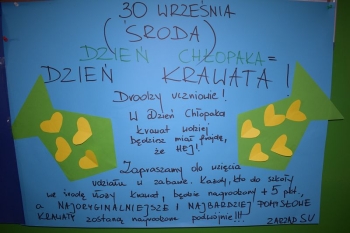 30 WRZEŚNIA
(ŚRODA)
DZIEŃ CHŁOPAKA =
DZIEŃ KRAWATA!
Drodzy uczniowie!
W Dzień Chłopaka
krawat
będziesz miał frajdę,
że HEJ!
Zapraszamy do wzięcia
udziału w zabawie. Każdy, kto do szkoły
we środę włoży krawat, będzie nagrodzony + 5 pkt.,
a NAJORYGINALNIEJSZE I NAJBARDZIEJ POMYSŁOWE
KRAWATY zostaną nagrodzone podwójnie!!!
ZARZĄD SU